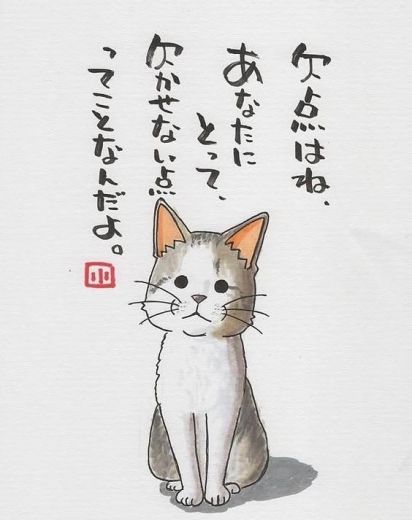 欠点はね、
あなたに
とって、
欠かせない点
ってことなんだよ。
小